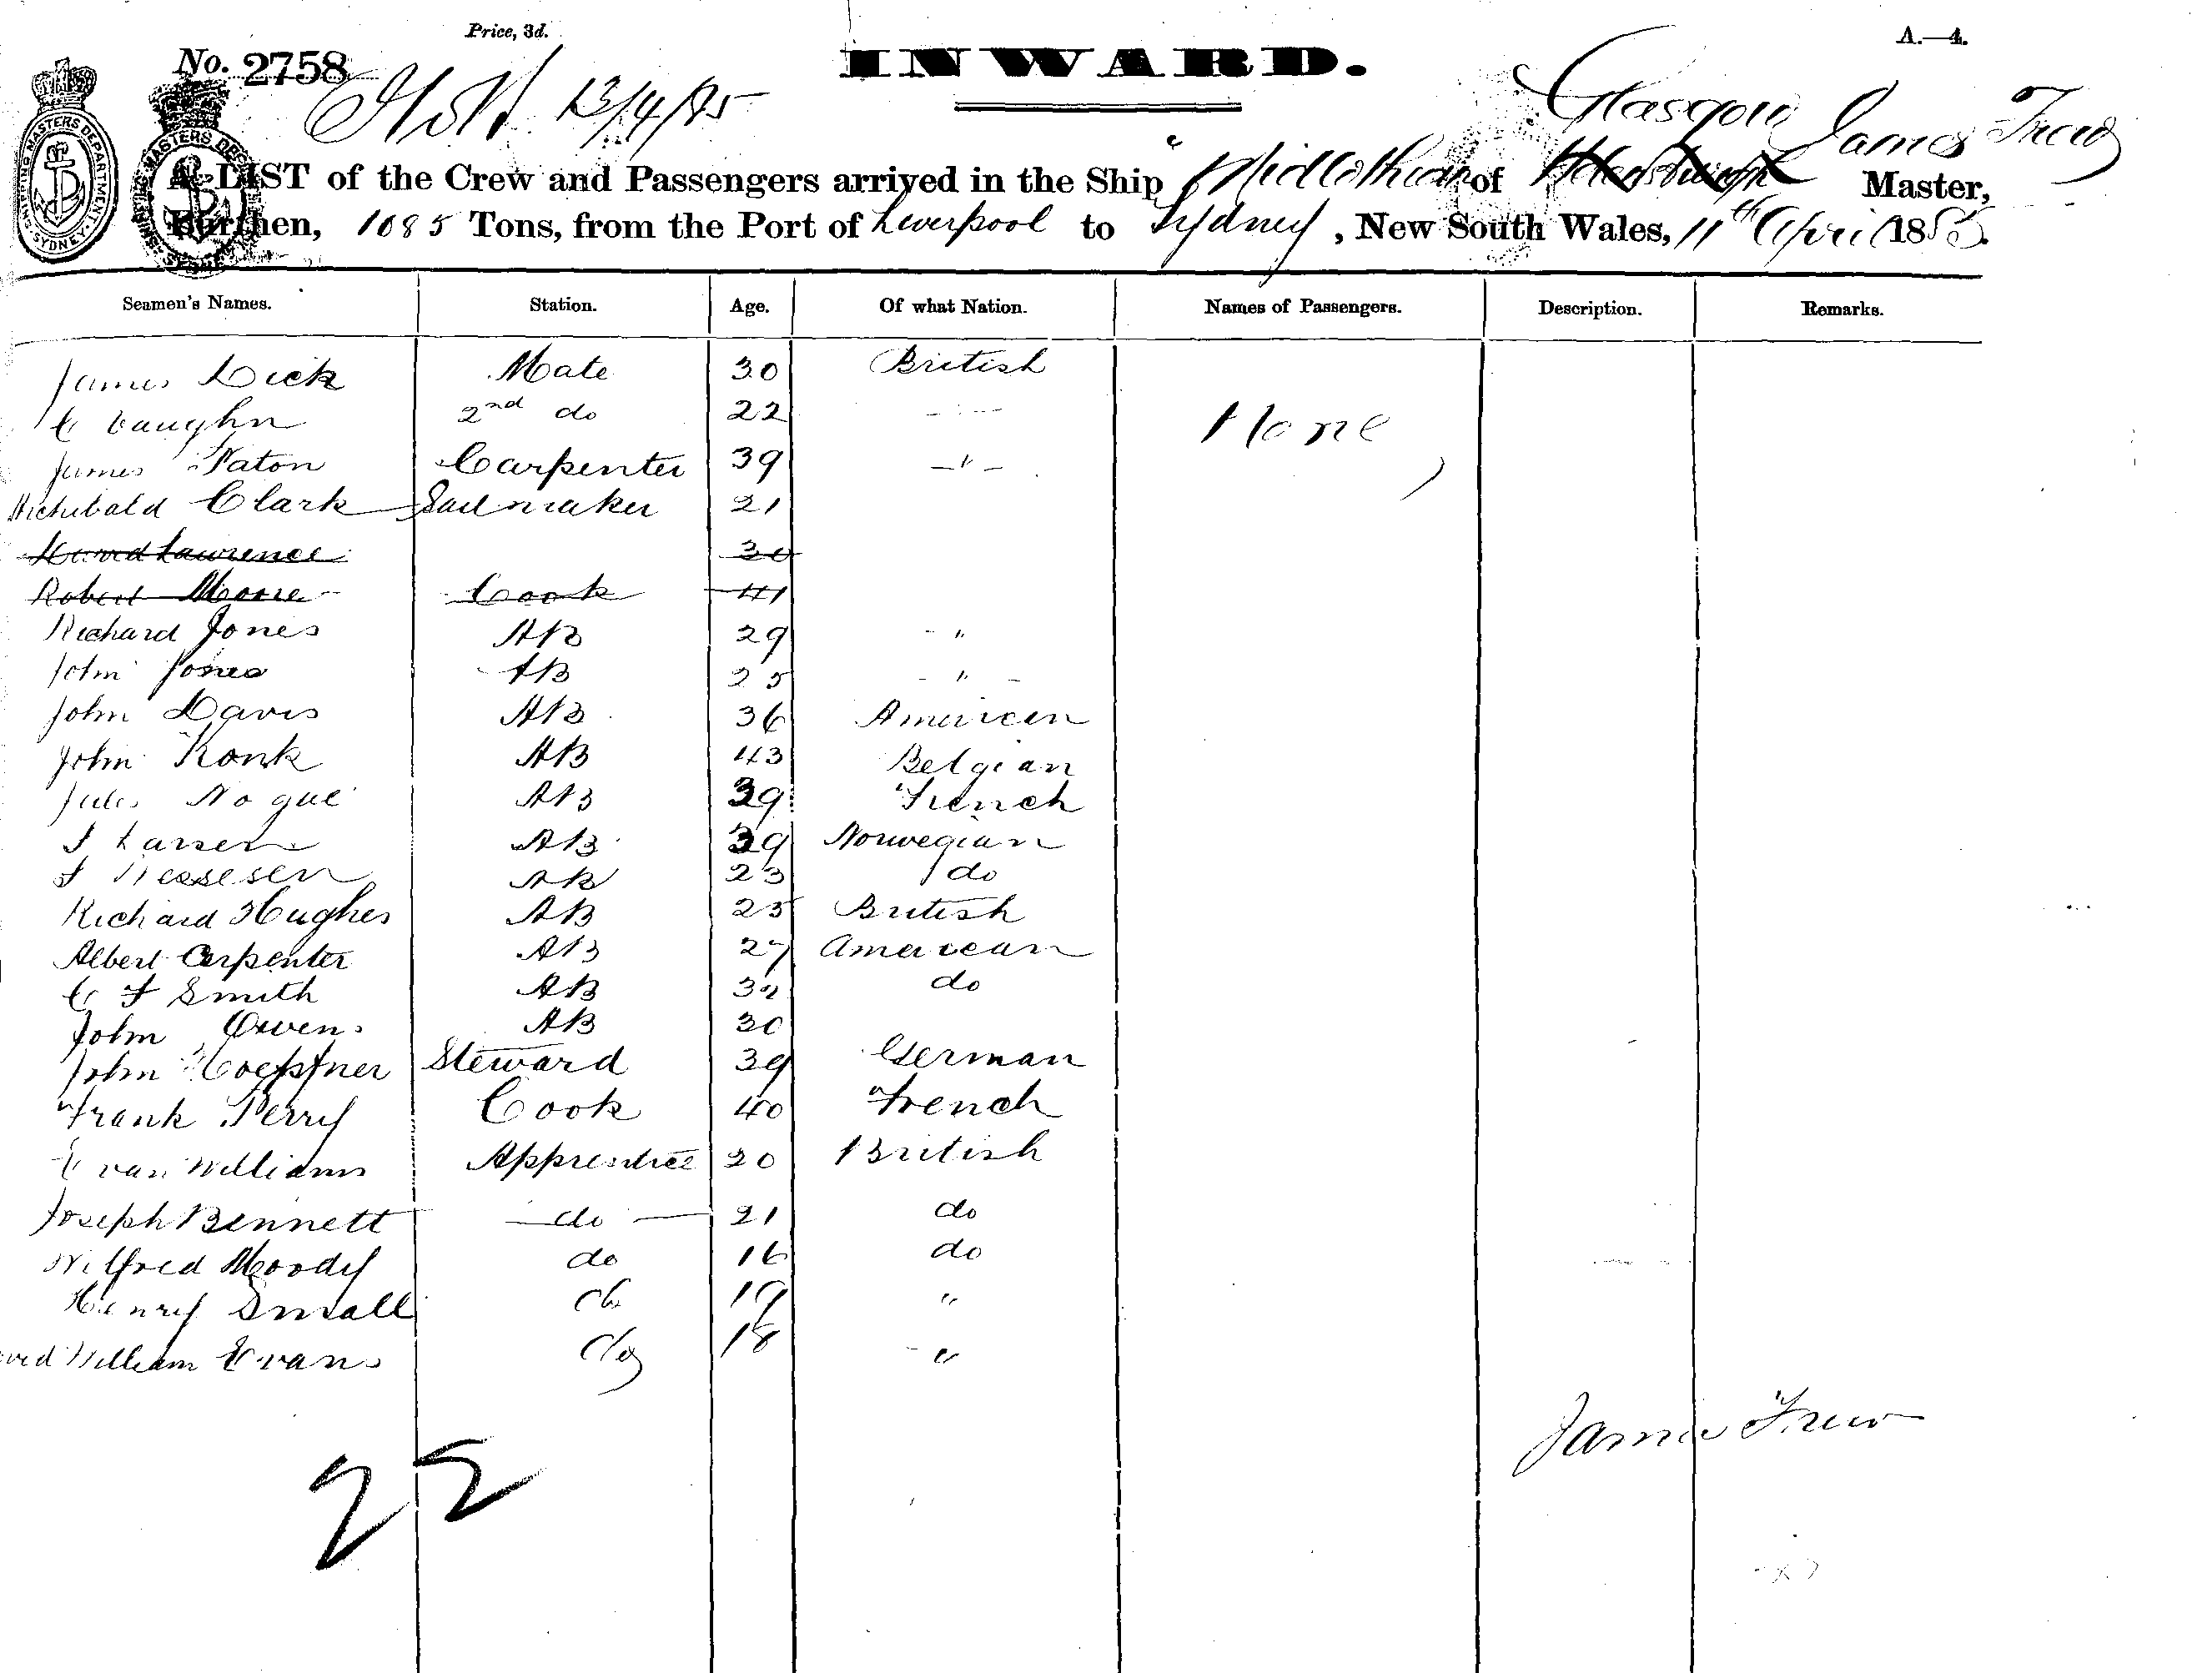 Price, 3d.
A.—4.
No. 2758
INWARD.
13/4/85
Glasgow James Frew
A LIST of the Crew and Passengers arrived in the Ship Midlothian of Master,
Burthen, 1085 Tons, from the Port of Liverpool to Sydney, New South Wales, 11th April 1885.
SHIPPING MASTERS DEPARTMENT SYDNEY
Seamen's Names. Station. Age. Of what Nation. Names of Passengers. Description. Remarks.
James Dick Mate 30 British
C Vaughn 2nd do 22 None
James Paton Carpenter 39 — " —
Archibald Clark Sailmaker 21
Lawrence 30
Robert Moore Cook 41
Richard Jones AB 29 "
John Jones AB 25 — " —
John Davis AB 36 American
John Konk AB 43 Belgian
Jules Nogue AB 39 French
J Larsen AB 39 Norwegian
AB 23 do
Richard Hughes AB 25 British
Albert Carpenter AB 27 American
C F Smith AB 32 do
John Owens AB 30
John Hoepfner Steward 39 German
Frank Perry Cook 40 French
Evan Williams Apprentice 20 British
Joseph Bennett do 21 do
Wilfred Moody do 16 do
Henry Small do 19 "
William Evans do 18 "
James Frew
22